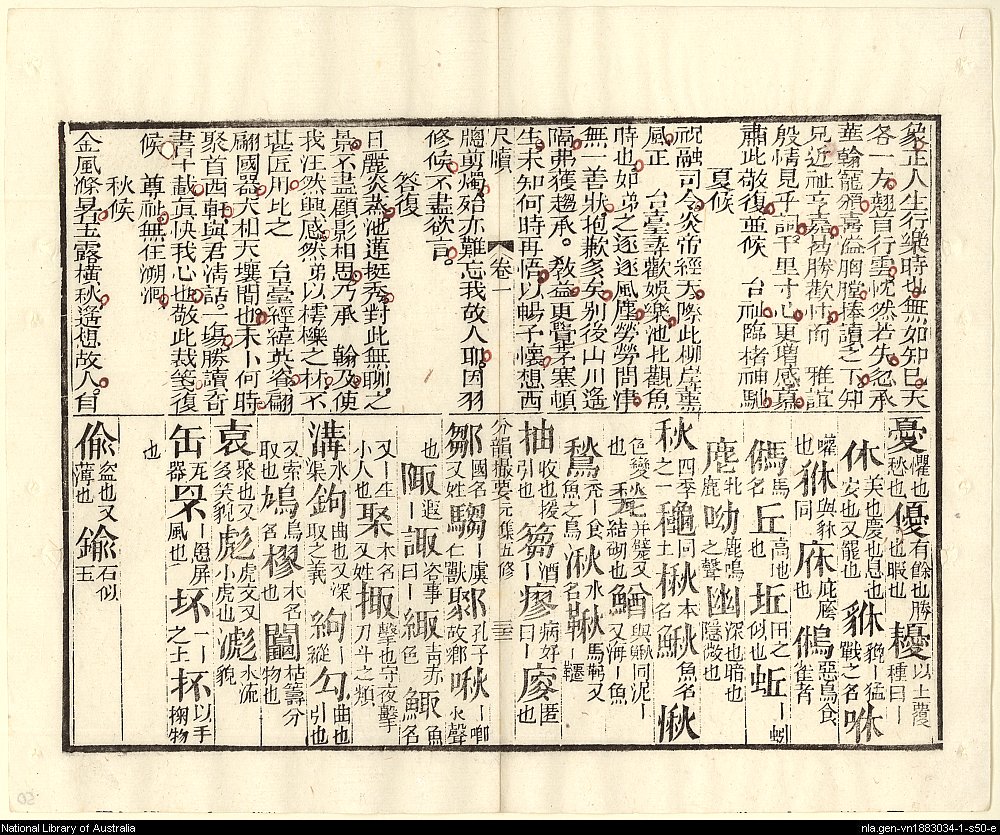 象正人生行樂時也無如知己天
各一方翹首行雲恍然若失忽承
華翰寵頒喜溢胸膛捧讀之下知
見近祉亨嘉易勝歡忭而 雅誼
殷情見乎詞千里寸心更增感慕
肅此敬復並候 台祉臨楮神馳
夏候
祝融司令炎帝經天際此柳岸薰
風正 台臺尋歡娛樂池北觀魚
時也如弟之逐逐風塵勞勞問津
無一善狀抱歉多矣別後山川遙
隔弗獲趨承教益更覺茅塞頓
生未知何時再悟以暢子懷想西
尺牘 卷一
牕剪燭殆亦難忘我故人耶因羽
修候不盡欲言
答復
日麗炎蒸池蓮挺秀對此無聊之
景不盡顧影相思乃承 翰及使
我汪然興感然弟以樗櫟之材不
堪匠用比之 台臺經緯英奇翩
翩國器大相天壤間也未卜何時
聚首西軒與君清話一塲勝讀奇
書十載眞快我心也敬此裁箋復
候 尊祉無任溯洄
秋候
金風滌暑玉露橫秋遙想故人自
憂懼也愁也優有餘也勝也暇也耰以上覆種曰丨
休美也慶也息也安也又罷也貅貔丨猛戰之名咻
嚾與貅也同貅庥庇廕也鵂丨惡鳥食雀者
傌馬名丘高地也坵田之似也蚯丨蚓
麀牝鹿呦鹿鳴之聲幽深也暗也隱微也
秋四季之一龝同上楸木名鰍魚名愀
色變也揫結砌也鰌與鰍同泥丨又海丨魚
鶖禿丨食魚之鳥湫水名鞦馬鞧又丨韆
抽收也援引也篘酒丨瘳病好曰丨廋匿也
分韻撮要元集五修 三
鄒國名又姓騶丨虞仁獸鄹孔子故鄉啾丨唧水聲
也陬遐丨諏咨事曰丨緅青赤色鯫魚名
又丨生小人也棸木名又姓掫擊也守夜擊刀斗之類
溝水丨集鉤曲也又深取之義絇丨縱勾曲也引也
又索取也鳩鳥名樛木名也鬮枯籌分物也
裒聚也又多笑貌彪虎文又小虎也滮水流貌
缶瓦器罘丨罳屏風也坏一丨之土抔以手掬物
也
偷盜也又薄也鍮石似玉
National Library of Australia
nla.gen-vn1883034-1-s50-e